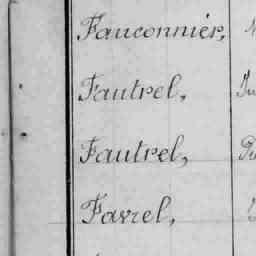 Fauconnier,
Fautrel,
Fautrel,
Favrel,